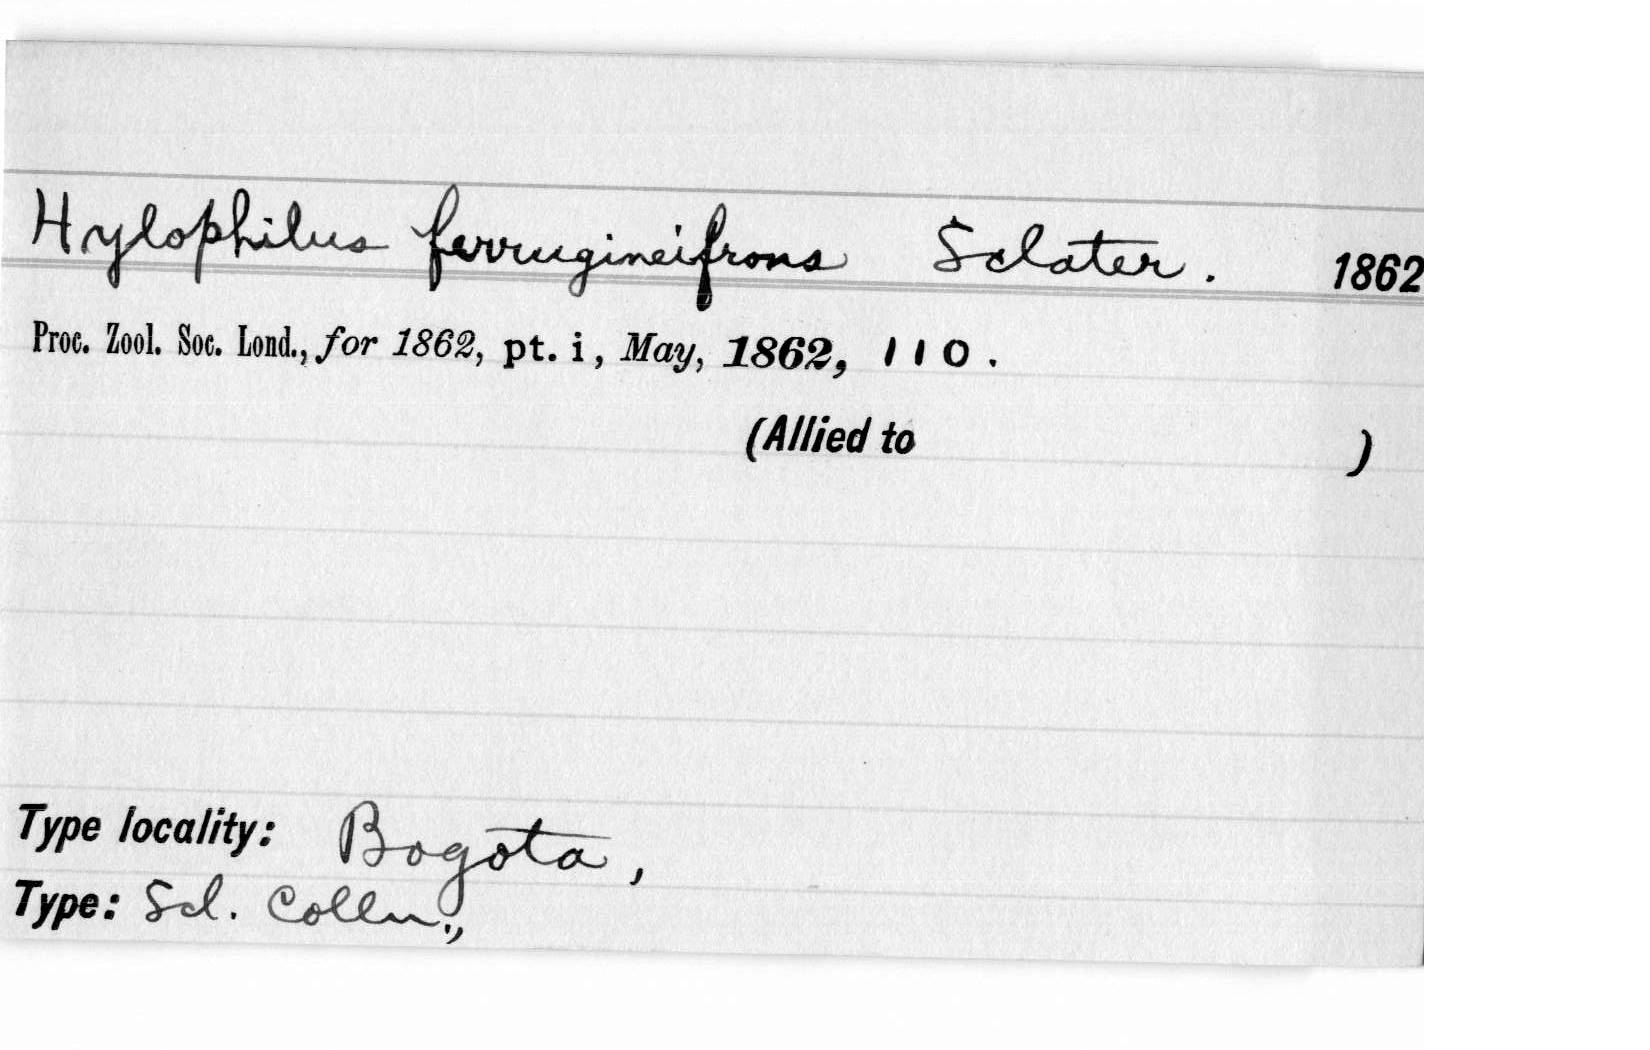 Hylophilus ferrugineifrons Sclater. 1862
Proc. Zool. Soc. Lond., for 1862, pt. i, May, 1862, 110.
(Allied to )
Type locality: Bogota,
Type: Scl. Colln.,